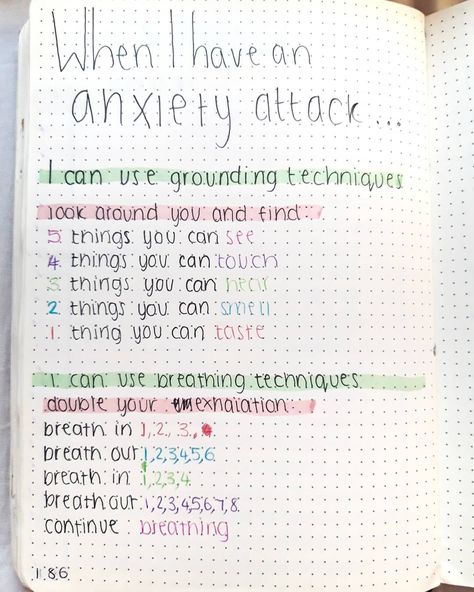 When I have an
anxiety attack...
I can use grounding techniques
look around you and find:
5 things you can see
4 things you can touch
3 things you can hear
2 things you can smell
1 thing you can taste
I can use breathing techniques
double your exhalation:
breath in 1, 2, 3,
breath out 1,2,3,4,5,6
breath in 1,2,3,4
breath out 1,2,3,4,5,6,7,8
continue breathing
186